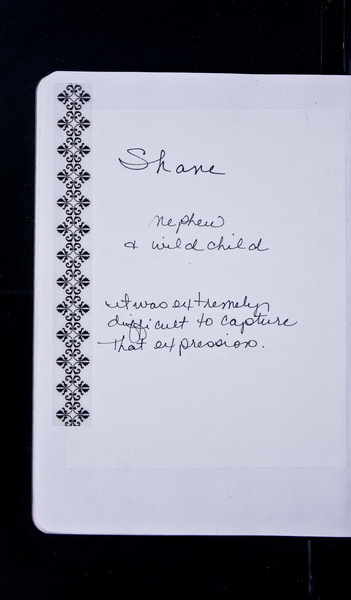 Shane
nephew
& wild child
it was extremely
difficult to capture
that expression.